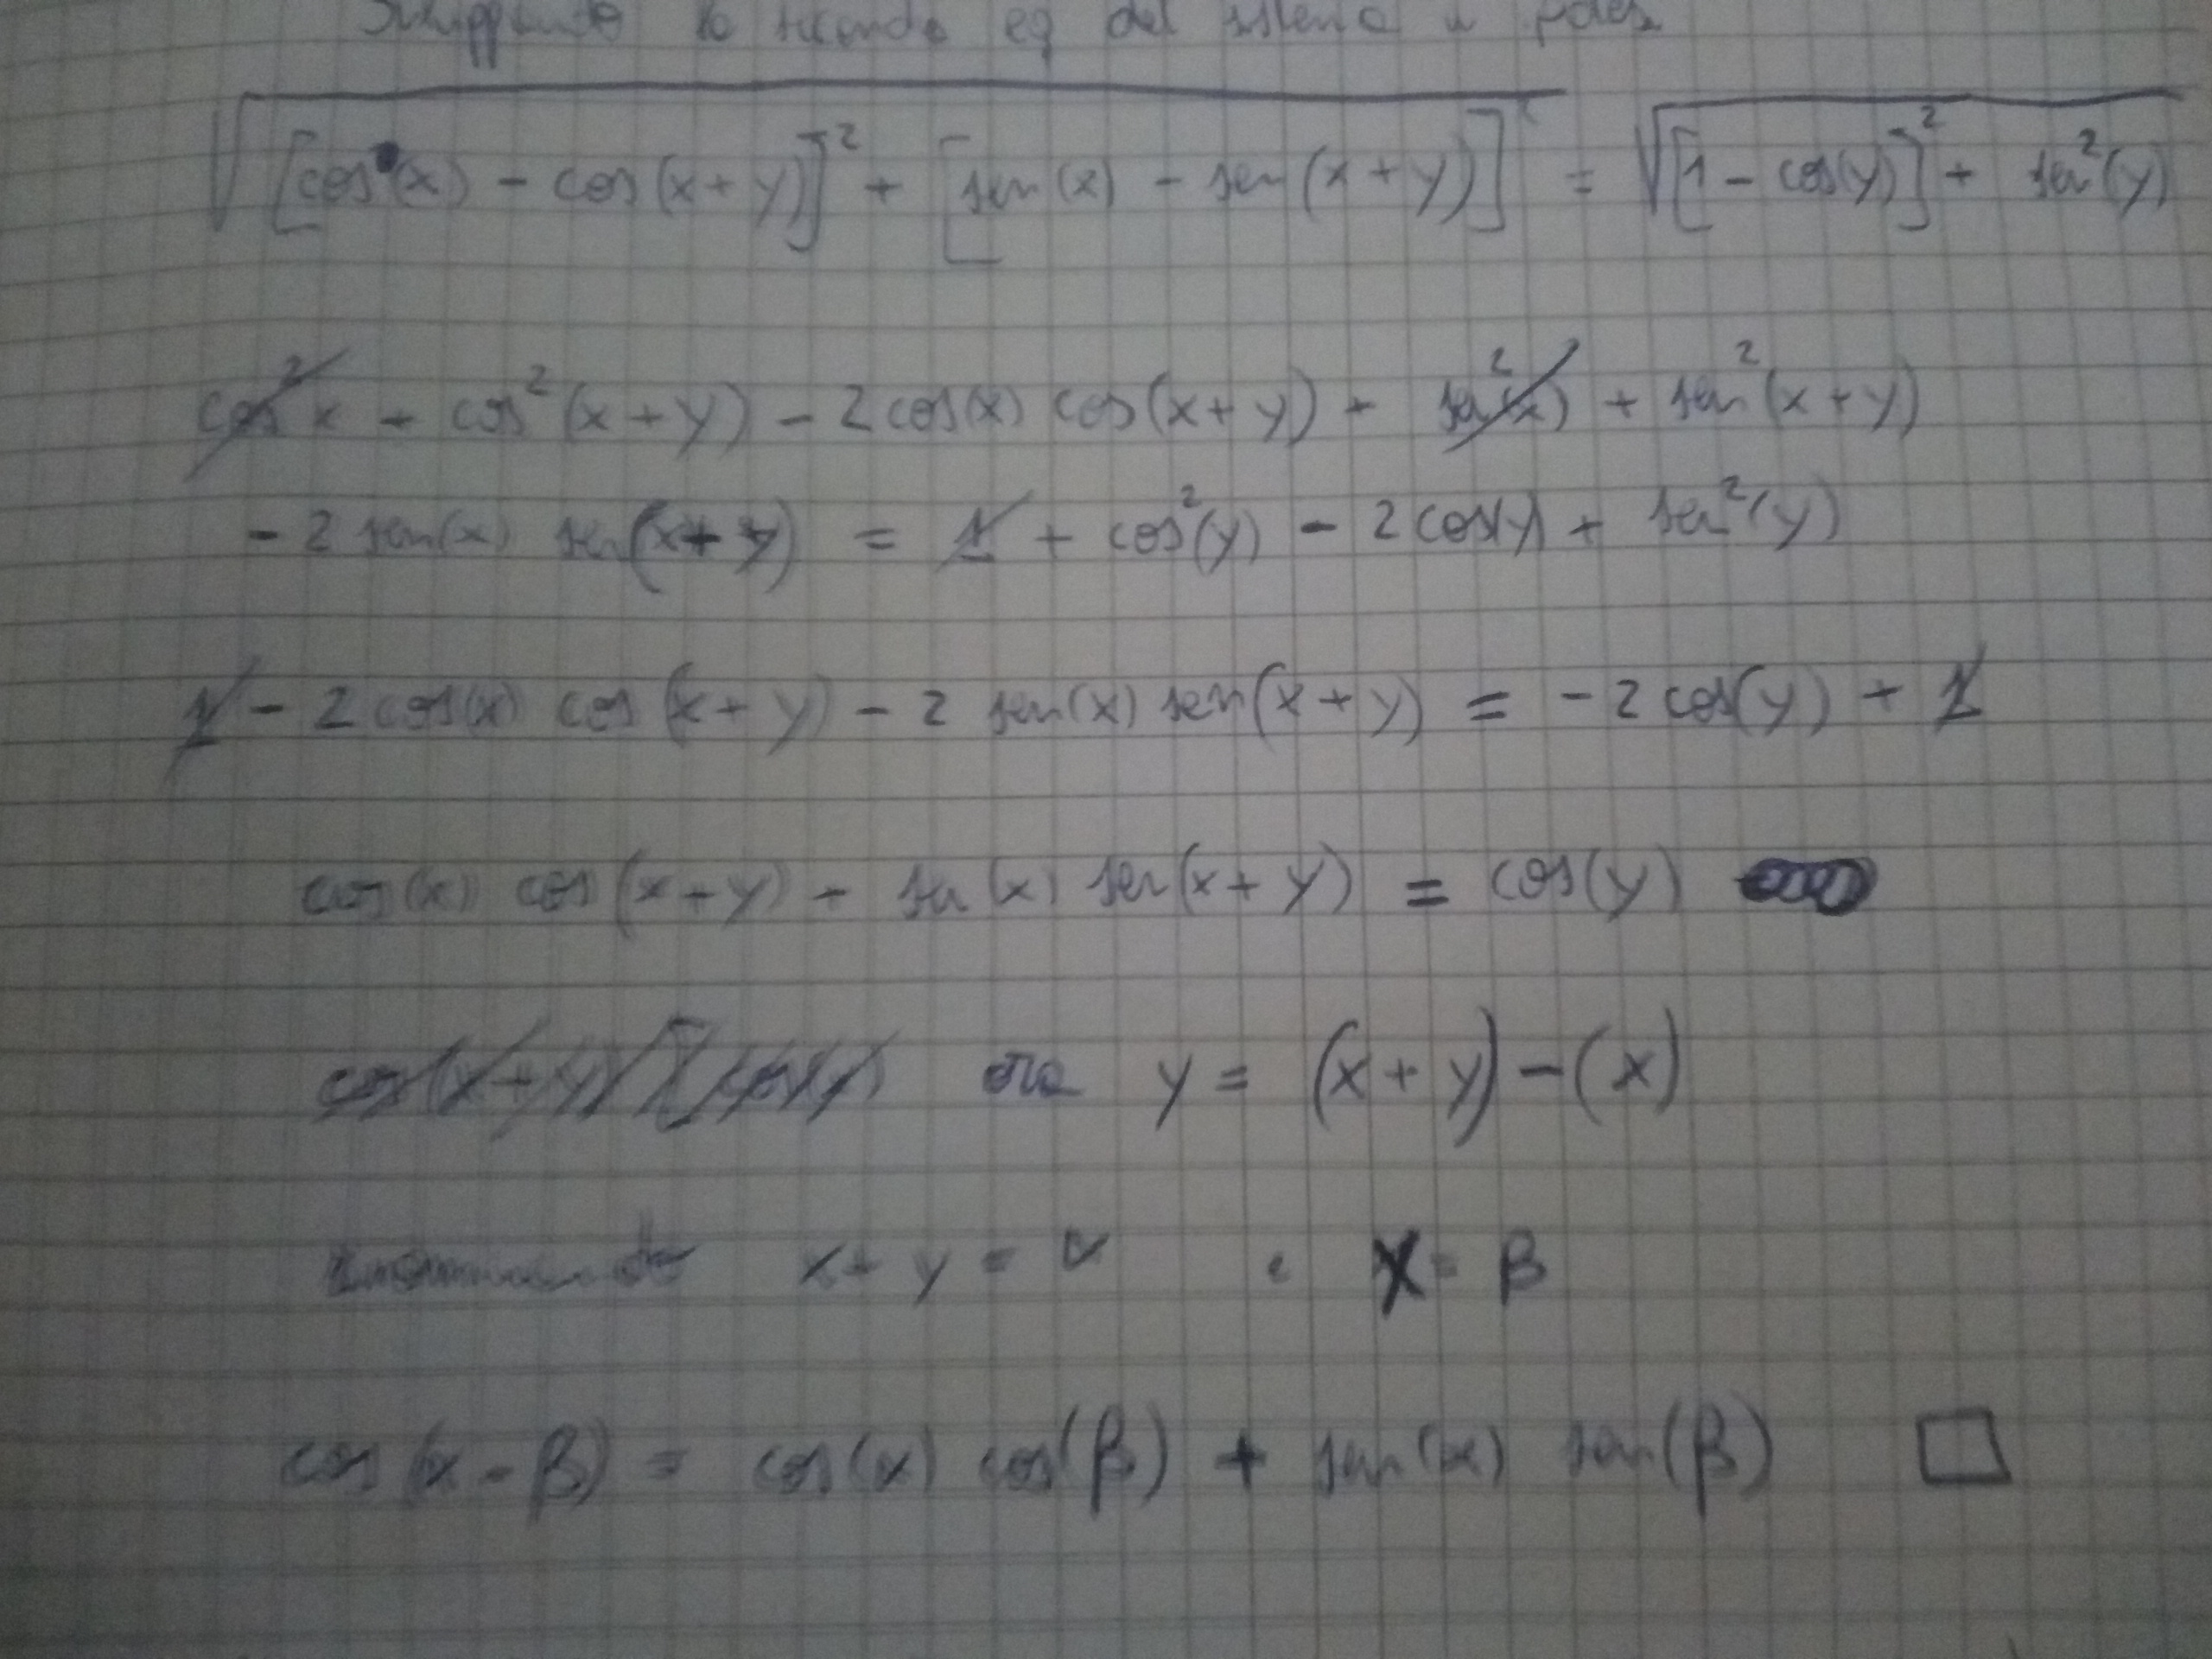 Sviluppando la seconda eq del sistema
√[cos(x) - cos(x+y)]² + [sen(x) - sen(x+y)]² = √[1 - cos(y)]² + sen²(y)
cos²x + cos²(x+y) - 2cos(x) cos(x+y) + sen²(x) + sen²(x+y)
- 2 sen(x) sen(x+y) = 1 + cos²(y) - 2cos(y) + sen²(y)
1 - 2cos(x) cos(x+y) - 2 sen(x) sen(x+y) = -2cos(y) + 1
cos(x) cos(x+y) + sen(x) sen(x+y) = cos(y)
ora y = (x+y) - (x)
x+y = α e x = β
cos(α - β) = cos(α) cos(β) + sen(α) sen(β) □